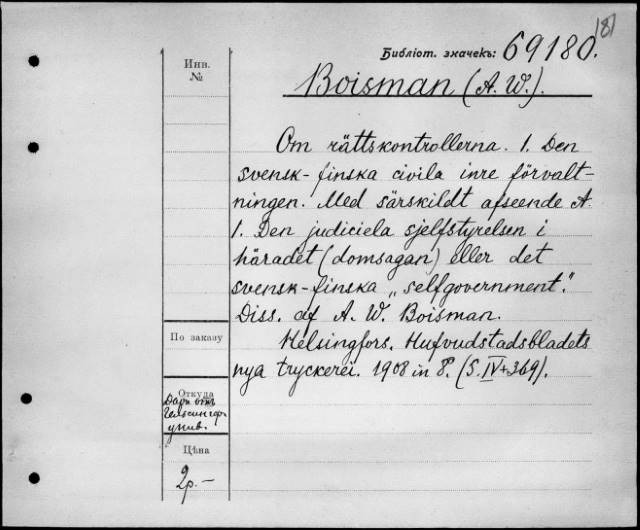 181
Библіот. значекъ: 69180.
Инв.
№
Boisman (A. W.).
Om rättskontrollerna. 1. Den
svensk-finska civila inre förvalt-
ningen. Med särskildt afseende A.
1. Den judiciela sjelfstyrelsen i
häradet (domsagan) eller det
svensk-finska „selfgovernment."
Diss. af A. W. Boisman.
По заказу
Helsingfors. Hufvudstadsbladets
nya tryckerei. 1908 in 8°. (S. IV+369).
Откуда
Даръ отъ
Гельсингф.
унив.
Цѣна
2р.-